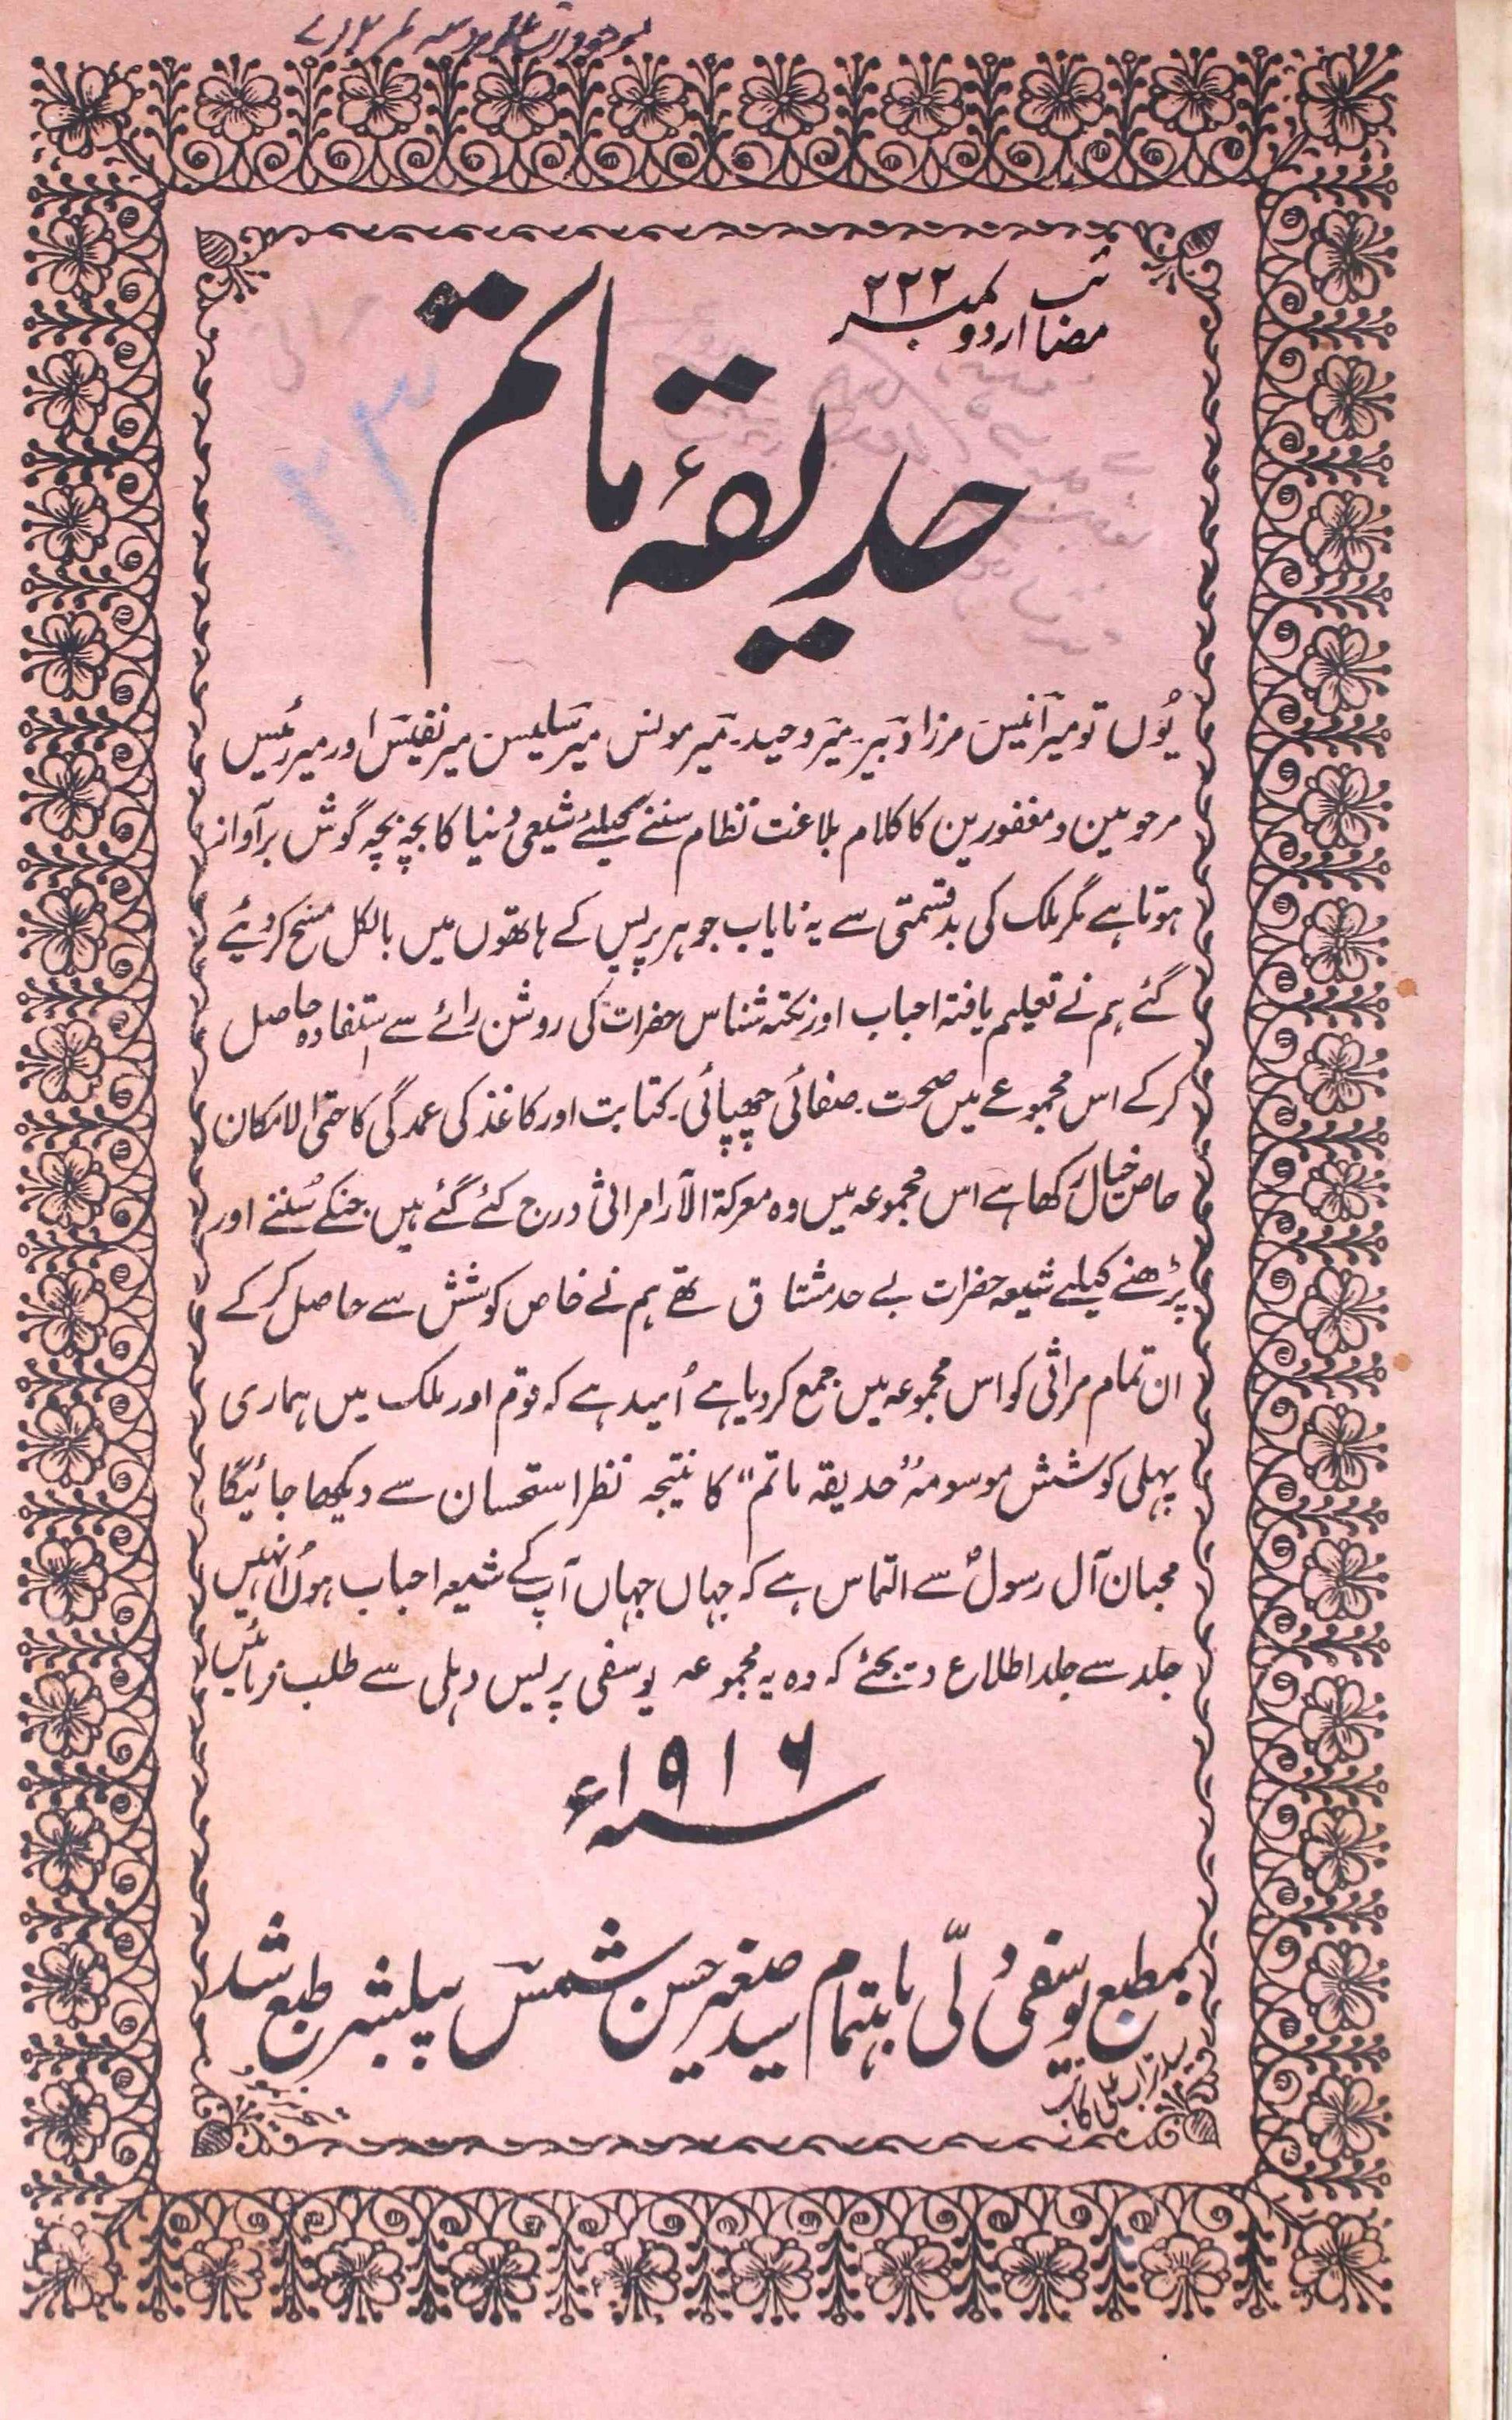 مضائب اردو نمبر ۲۲۲
حدیقۂ ماتم
یُوں تو میر انیس مرزا دبیر۔ میر وحید۔ میر مونس میر سلیس۔ میر نفیس اور میر رئیس
مرحومین و مغفورین کا کلام بلاغت نظام سننے کیلئے شیعی دُنیا کا بچہ بچہ گوش برآواز
ہوتا ہے مگر ملک کی بدقسمتی سے یہ نایاب جوہر پریس کے ہاتھوں میں بالکل مسخ کر دئیے
گئے ہم نے تعلیم یافتہ احباب اور نکتہ شناس حضرات کی روشن رائے سے استفادہ حاصل
کرکے اس مجموعے میں صحت۔ صفائی چھپائی۔ کتابت اور کاغذ کی عمدگی کا حتی الامکان
خاص خیال رکھا ہے اس مجموعہ میں وہ معرکۃ الآرا مراثی درج کئے گئے ہیں جنکے سُننے اور
پڑھنے کیلئے شیعہ حضرات بے حد مشتاق تھے ہم نے خاص کوشش سے حاصل کرکے
ان تمام مراثی کو اس مجموعہ میں جمع کردیا ہے اُمید ہے کہ قوم اور ملک میں ہماری
پہلی کوشش موسومہُ ”حدیقہ ماتم“ کا نتیجہ نظر استحسان سے دیکھا جائیگا
محبان آل رسولؐ سے التماس ہے کہ جہاں جہاں آپ کے شیعہ احباب ہوں اُنہیں
جلد سے جلد اطلاع دیجئے کہ وہ یہ مجموعہ یوسفی پریس دہلی سے طلب فرمائیں
سنہ ۱۹۱۶ء
بمطبع یوسفی دُلّی باہتمام سید صغیر حسن شمس پبلشر طبع شد
سید تراب علی کاتب